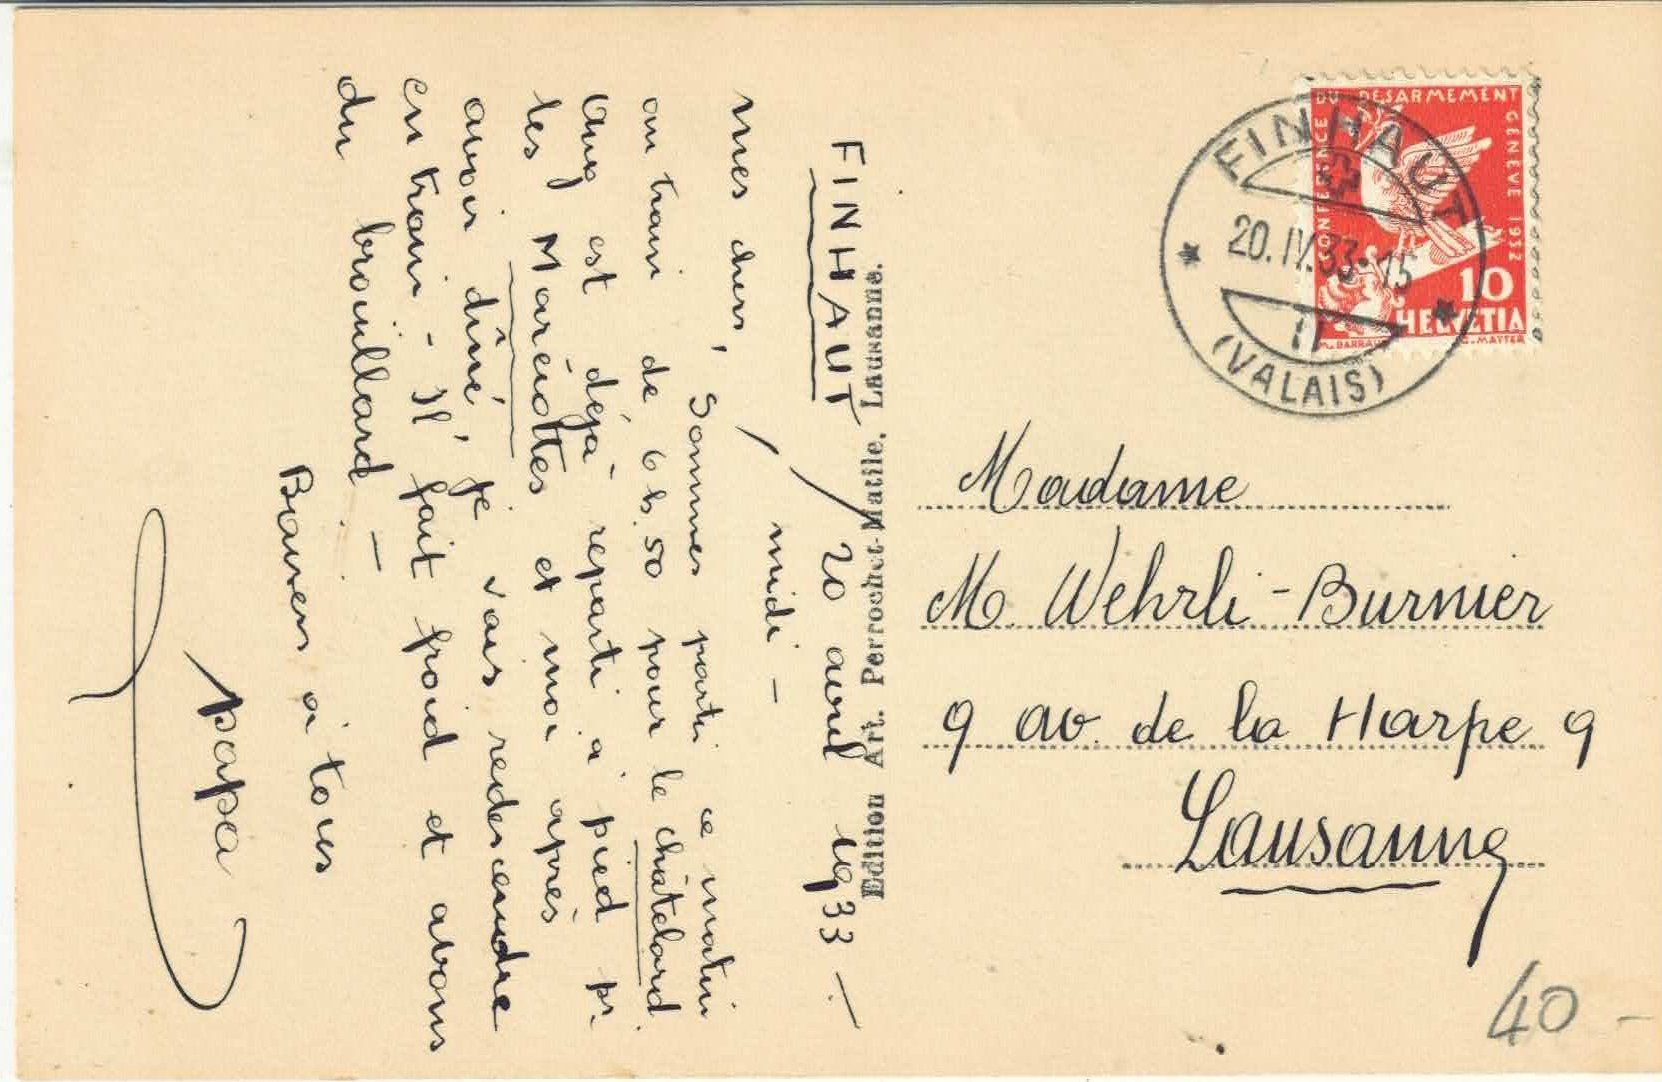 FINHAUT / 20 avril 1933 -
midi -
mes chers,
Sommes parti ce matin
au train de 6 h. 50 pour le châtelard.
est déjà reparti à pied pr.
les Marécottes et moi après
avoir dîné, je vais redescendre
en train - Il fait froid et avons
du brouillard -
Baisers à tous
papa
Edition Art. Perrochet-Matile, Lausanne.
CONFERENCE DU DESARMEMENT GENEVE 1932
10
HELVETIA
M. BARRAUD G. MATTER
FINHAUT
20.IV.33-15
(VALAIS)
Madame
M. Wehrli-Burnier
9 av. de la Harpe 9
Lausanne
40 -